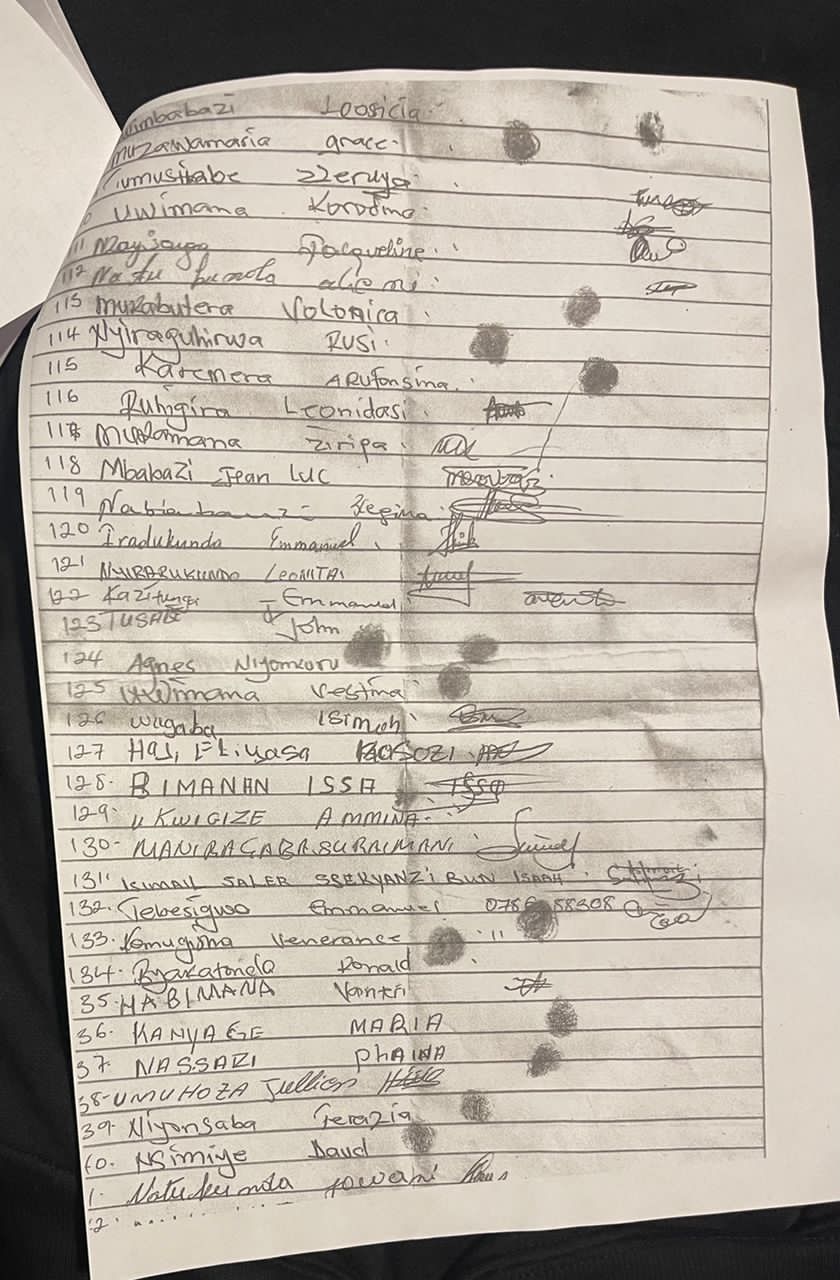 Loosicia
muzawamaria grace
Tumusiabe Zeruya
Uwimana Korodina
11 Jacqueline
112
113 Mukabutera Volonira
114 Nyiraguhirwa Rusi
115 Karemera ARufonsina
116 Ruhigira Leonidasi
Ziripa
118 Mbabazi Jean Luc
119 Regina
120 Iradukunda Emmanuel
121 NYIRARUKUNDO LEONITAI
122 Kazitunga Emmanuel
123 TUSABE John
124 Agnes Niyonzuru
125 Uwimana Vestina
126 wagaba Isimoh
127 Haj, Eliyasa KASOZI
128. BIMANAN ISSA
129. UKWIGIZE AMMINA
130- MANIRAGABA.SURAIMANI
131. ISIMAIL SALEH SSERYANZI BUN ISAAH
132. Tebesigwa Emmanuel
133. Komugisha Venerance "
134. Byakatonda Ronald
35. HABIMANA
36. KANYAGE MARIA
37. NASSAZI PHAINA
38- UMUHOZA Jullien
39. Niyonsaba Terazia
40. Nsimiye Daud
1. Natukunda Jowani
2